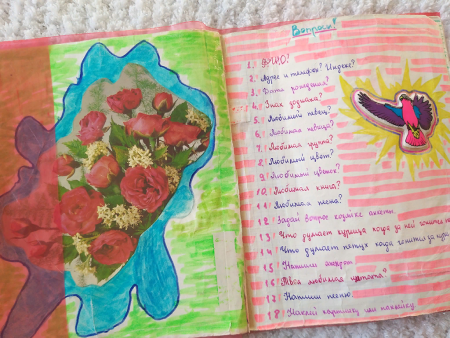 Вопросы!
1. Ф.И.О?
2. Адрес и телефон? Индекс?
3. Дата рождения?
4. Знак зодиака?
5. Любимый певец?
6. Любимая певица?
7. Любимая группа?
8. Любимый цвет?
9. Любимый цветок?
10. Любимая книга?
11. Любимая песня?
12. Задай вопрос хозяйке анкеты.
13. Что думает курица когда за ней
14. Что думает петух когда гонится за
15. Напиши анекдот.
16. Твоя любимая цитата?
17. Напиши песню.
18. Наклей картинку или наклейку.